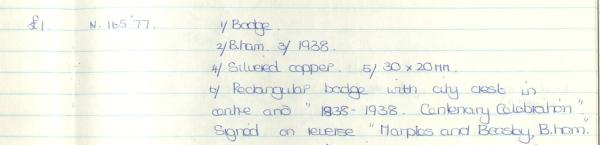 £1. N. 165'77. 1/ Badge.
2/ B.ham. 3/ 1938.
4/ Silvered copper. 5/ 30 x 20mm.
6/ Rectangular badge with city crest in
centre and "1838-1938. Centenary Celebration".
Signed on reverse "Marples and Beasby, B.ham.